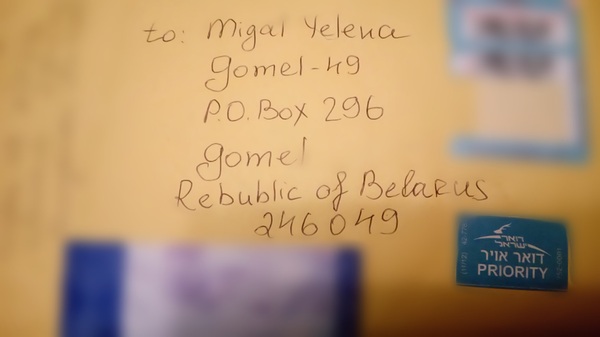 to: Migal Yelena
Gomel-49
P.O.Box 296
Gomel
Rebublic of Belarus
246049
דואר
ישראל
דואר אויר
PRIORITY